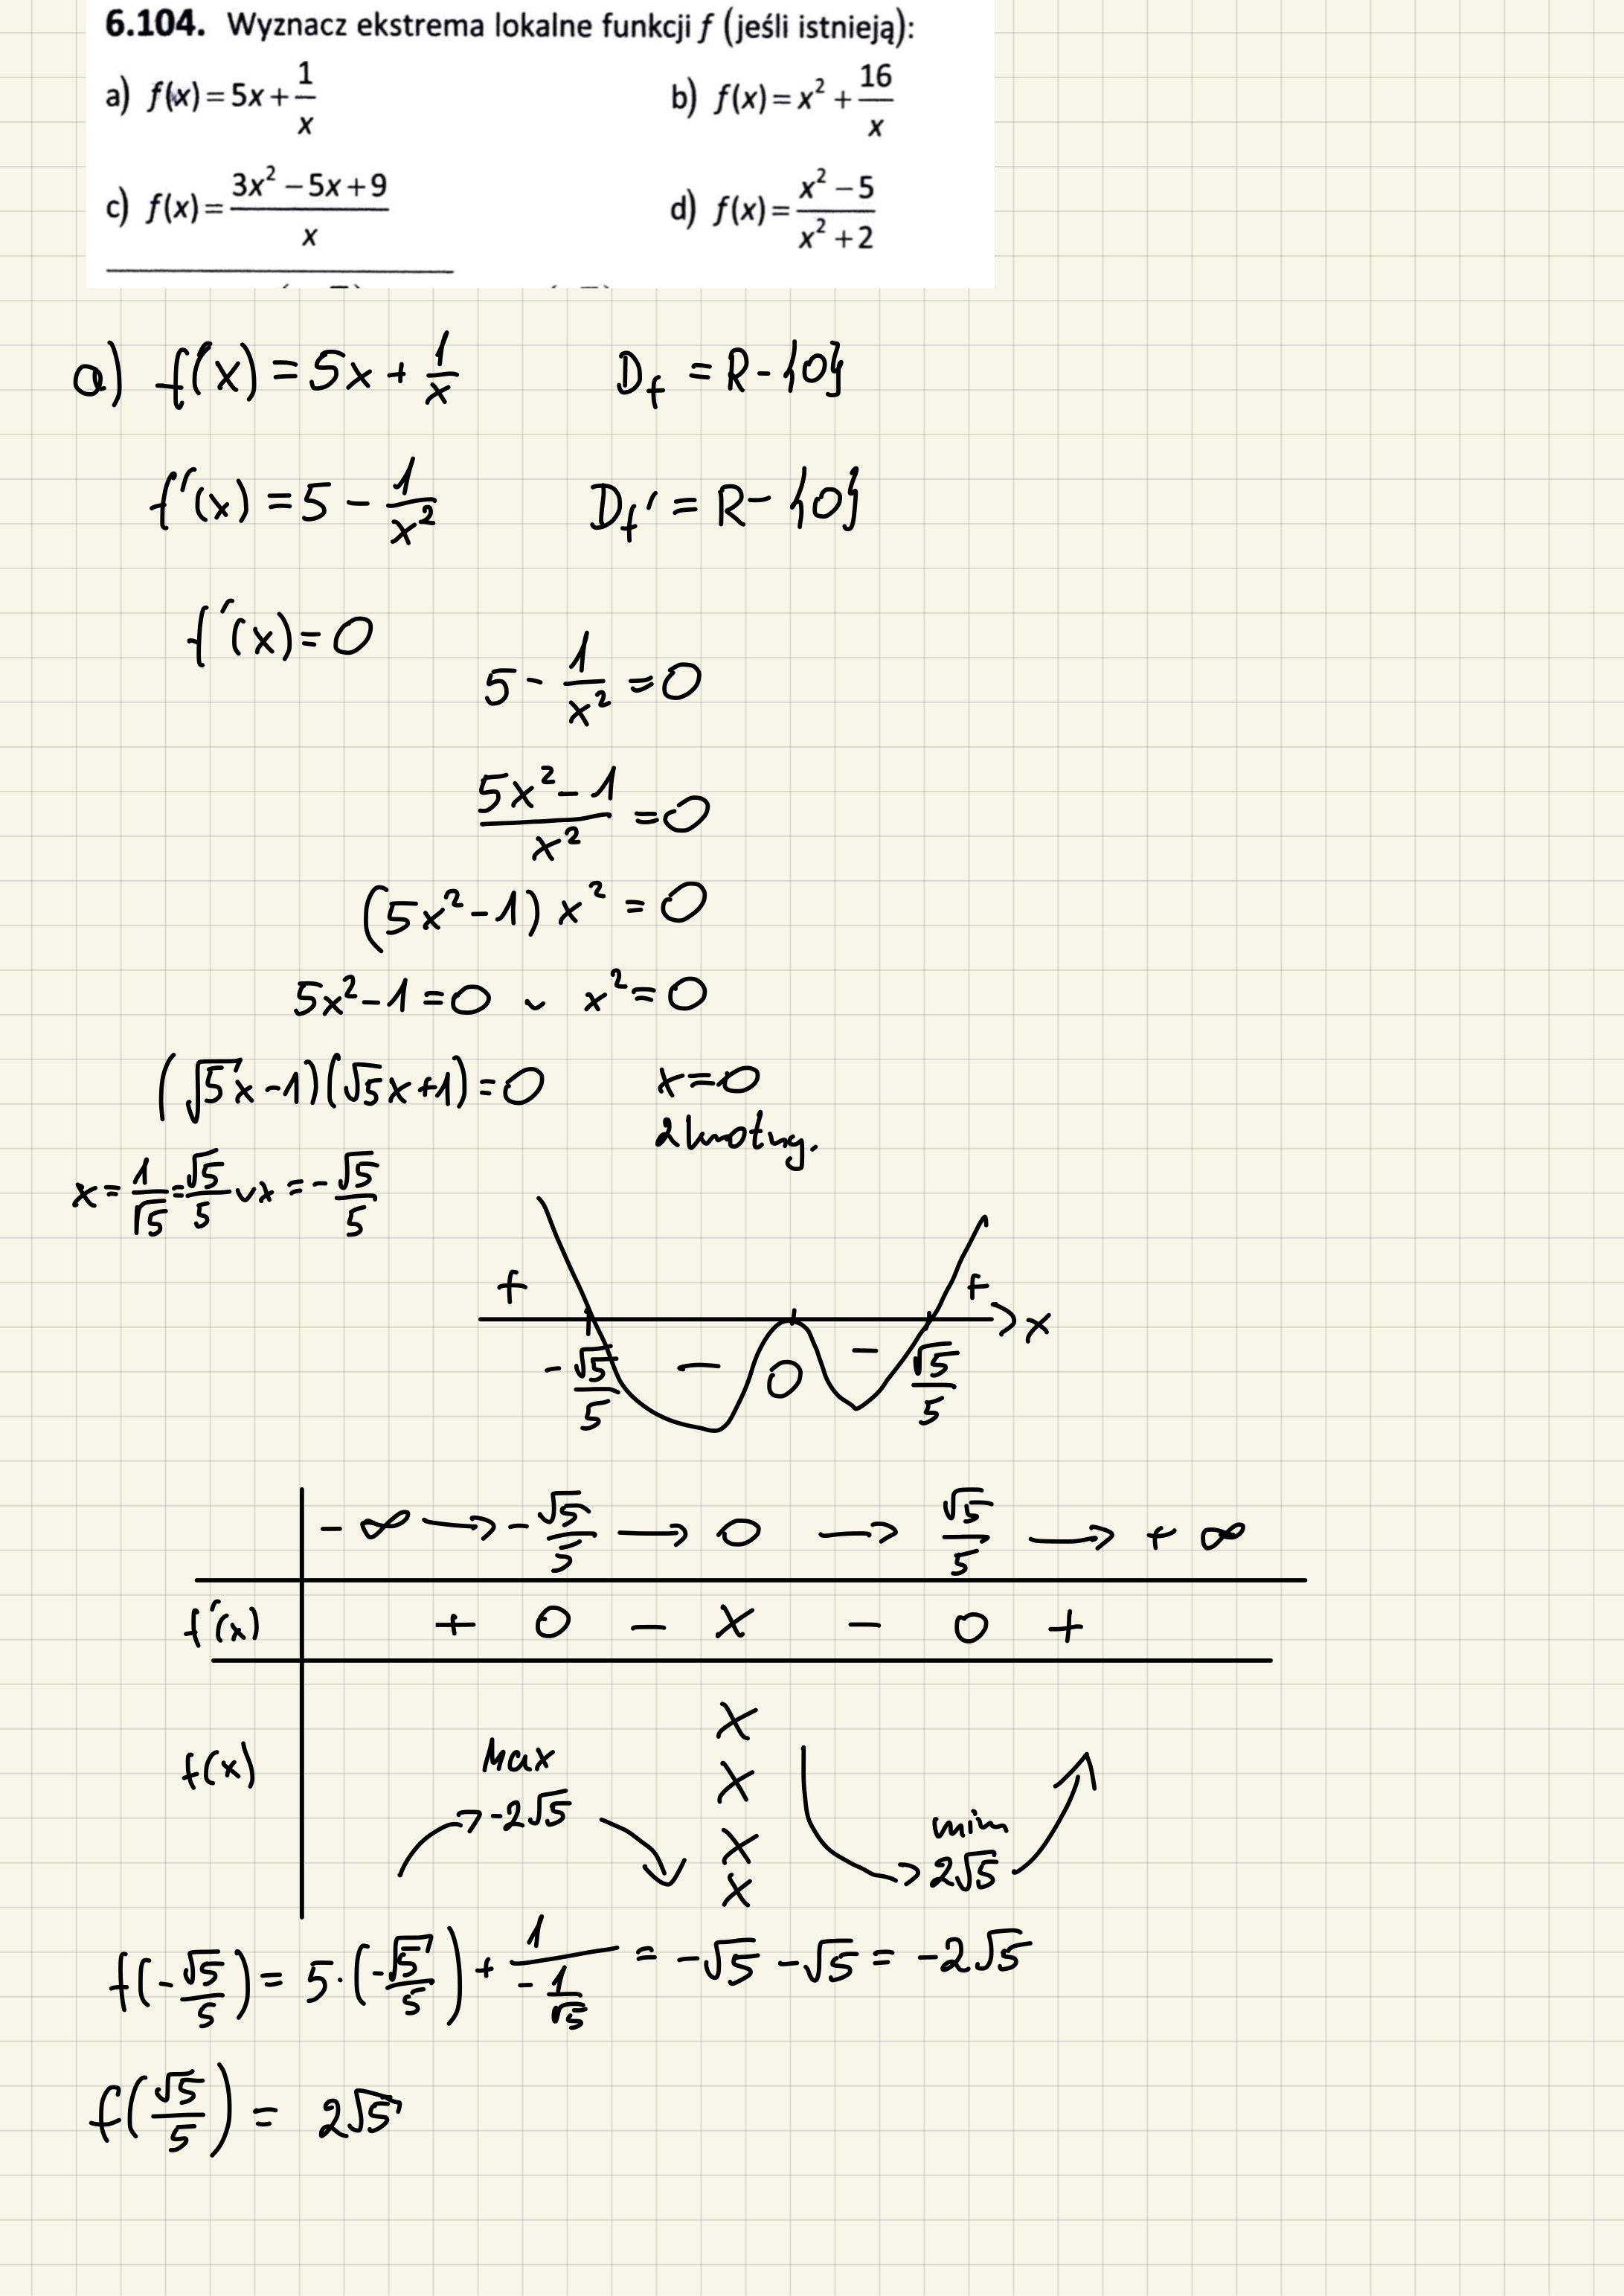 6.104. Wyznacz ekstrema lokalne funkcji f (jeśli istnieją):
a) f(x) = 5x + 1/x b) f(x) = x² + 16/x
c) f(x) = (3x² − 5x + 9)/x d) f(x) = (x² − 5)/(x² + 2)
a) f(x) = 5x + 1/x D_f = R - {0}
f'(x) = 5 - 1/x² D_f' = R - {0}
f'(x) = 0
5 - 1/x² = 0
(5x² - 1)/x² = 0
(5x² - 1) x² = 0
5x² - 1 = 0 ∨ x² = 0
(√5x - 1)(√5x + 1) = 0 x = 0
2krotny.
x = 1/√5 = √5/5 ∨ x = -√5/5
+ + x
-√5/5 - 0 - √5/5
-∞ → -√5/5 → 0 → √5/5 → +∞
f'(x) + 0 - X - 0 +
X
f(x) Max X
-2√5 min
X 2√5
X
f(-√5/5) = 5·(-√5/5) + 1/(-1/√5) = -√5 - √5 = -2√5
f(√5/5) = 2√5